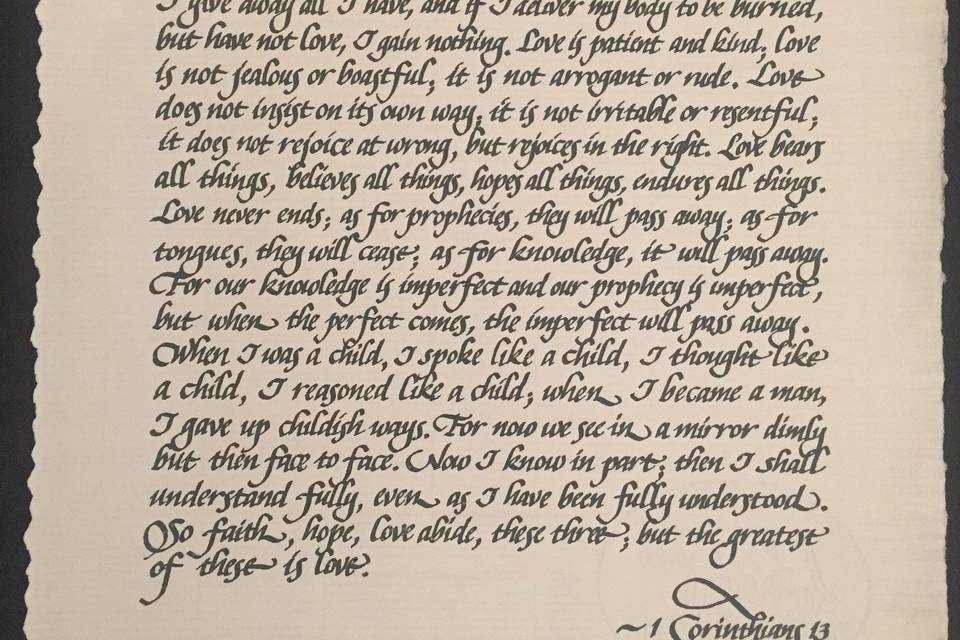 I give away all I have, and if I deliver my body to be burned,
but have not love, I gain nothing. Love is patient and kind; love
is not jealous or boastful; it is not arrogant or rude. Love
does not insist on its own way; it is not irritable or resentful;
it does not rejoice at wrong, but rejoices in the right. Love bears
all things, believes all things, hopes all things, endures all things.
Love never ends; as for prophecies, they will pass away; as for
tongues, they will cease; as for knowledge, it will pass away.
For our knowledge is imperfect and our prophecy is imperfect,
but when the perfect comes, the imperfect will pass away.
When I was a child, I spoke like a child, I thought like
a child, I reasoned like a child; when I became a man,
I gave up childish ways. For now we see in a mirror dimly
but then face to face. Now I know in part; then I shall
understand fully, even as I have been fully understood.
So faith, hope, love abide, these three; but the greatest
of these is love.
~1 Corinthians 13